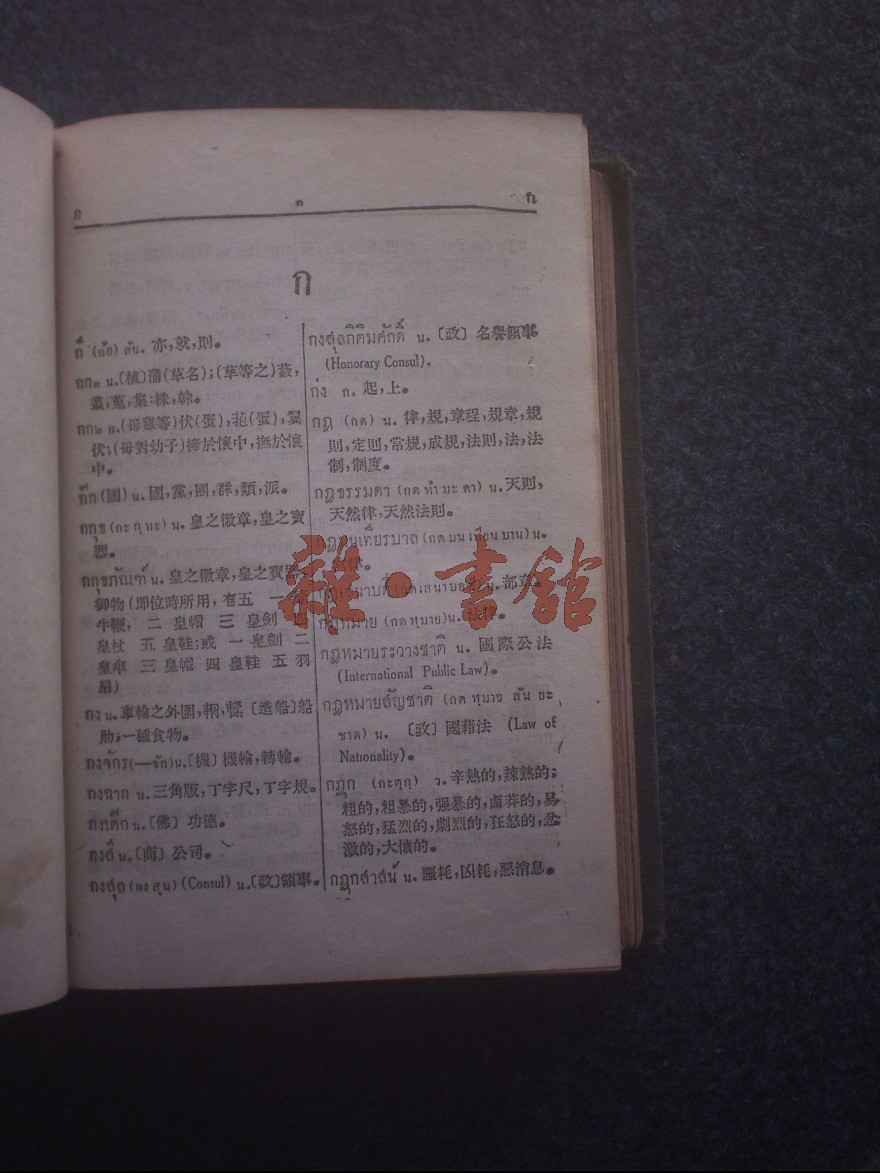 ก ๑ ก
ก
ก็ (ก้อ) สัน. 亦,就,則。
กก๑ น.〔植〕蒲(草名);(草等之)叢,
叢,蔸,集:株,幹。
กก๒ ก.(母雞等)伏(蛋),菢(蛋),翼
伏;(母對幼子)擁於懷中,撫於懷
中。
ก๊ก (國) น. 國,黨,團,群,類,派。
กกุธ (กะ กุ ทะ) น. 皇之徽章,皇之寶
器。
กกุธภัณฑ์ น. 皇之徽章,皇之寶器,
御物(即位時所用,有五 一
牛鞭, 二 皇帽 三 皇劍 四
皇杖 五 皇鞋;或 一 皇劍 二
皇傘 三 皇帽 四 皇鞋 五 羽
扇)
กง น. 車輪之外圈,輞,〔造船〕船
肋;一種食物。
กงจักร (—จัก)น.〔機〕機輪,轉輪。
กงฉาก น. 三角版,丁字尺,丁字規。
กงเต๊ก น.〔佛〕功德。
กงสี น.〔商〕公司。
กงสุล (กง สุน) (Consul) น.〔政〕領事。
กงสุลกิติมศักดิ์ น.〔政〕名譽領事
(Honorary Consul).
ก่ง ก. 起,上。
กฎ (กด) น. 律,規,章程,規章,規
則,定則,常規,成規,法則,法,法
制,制度。
กฎธรรมดา (กด ทำ มะ ดา) น. 天則,
天然律,天然法則。
กฎมนเทียรบาล (กด มน เทียน บาน) น.
宮律。
กฎเสนาบดี (กดเสนาบอดี) น. 部章。
กฎหมาย (กด หฺมาย) น. 法律。
กฎหมายระวางชาติ น. 國際公法
(International Public Law)。
กฎหมายสัญชาติ (กด หฺมาย สัน ยะ
ชาด) น. 〔政〕國籍法 (Law of
Nationality)。
กฏุก (กะตุก) ว. 辛熱的,辣熱的;
粗的,粗暴的,强暴的,鹵莽的,易
怒的,猛烈的,劇烈的,狂怒的,忿
激的,大憤的。
กฏุกศาสน์ น. 噩耗,凶耗,惡消息。
雜·書館